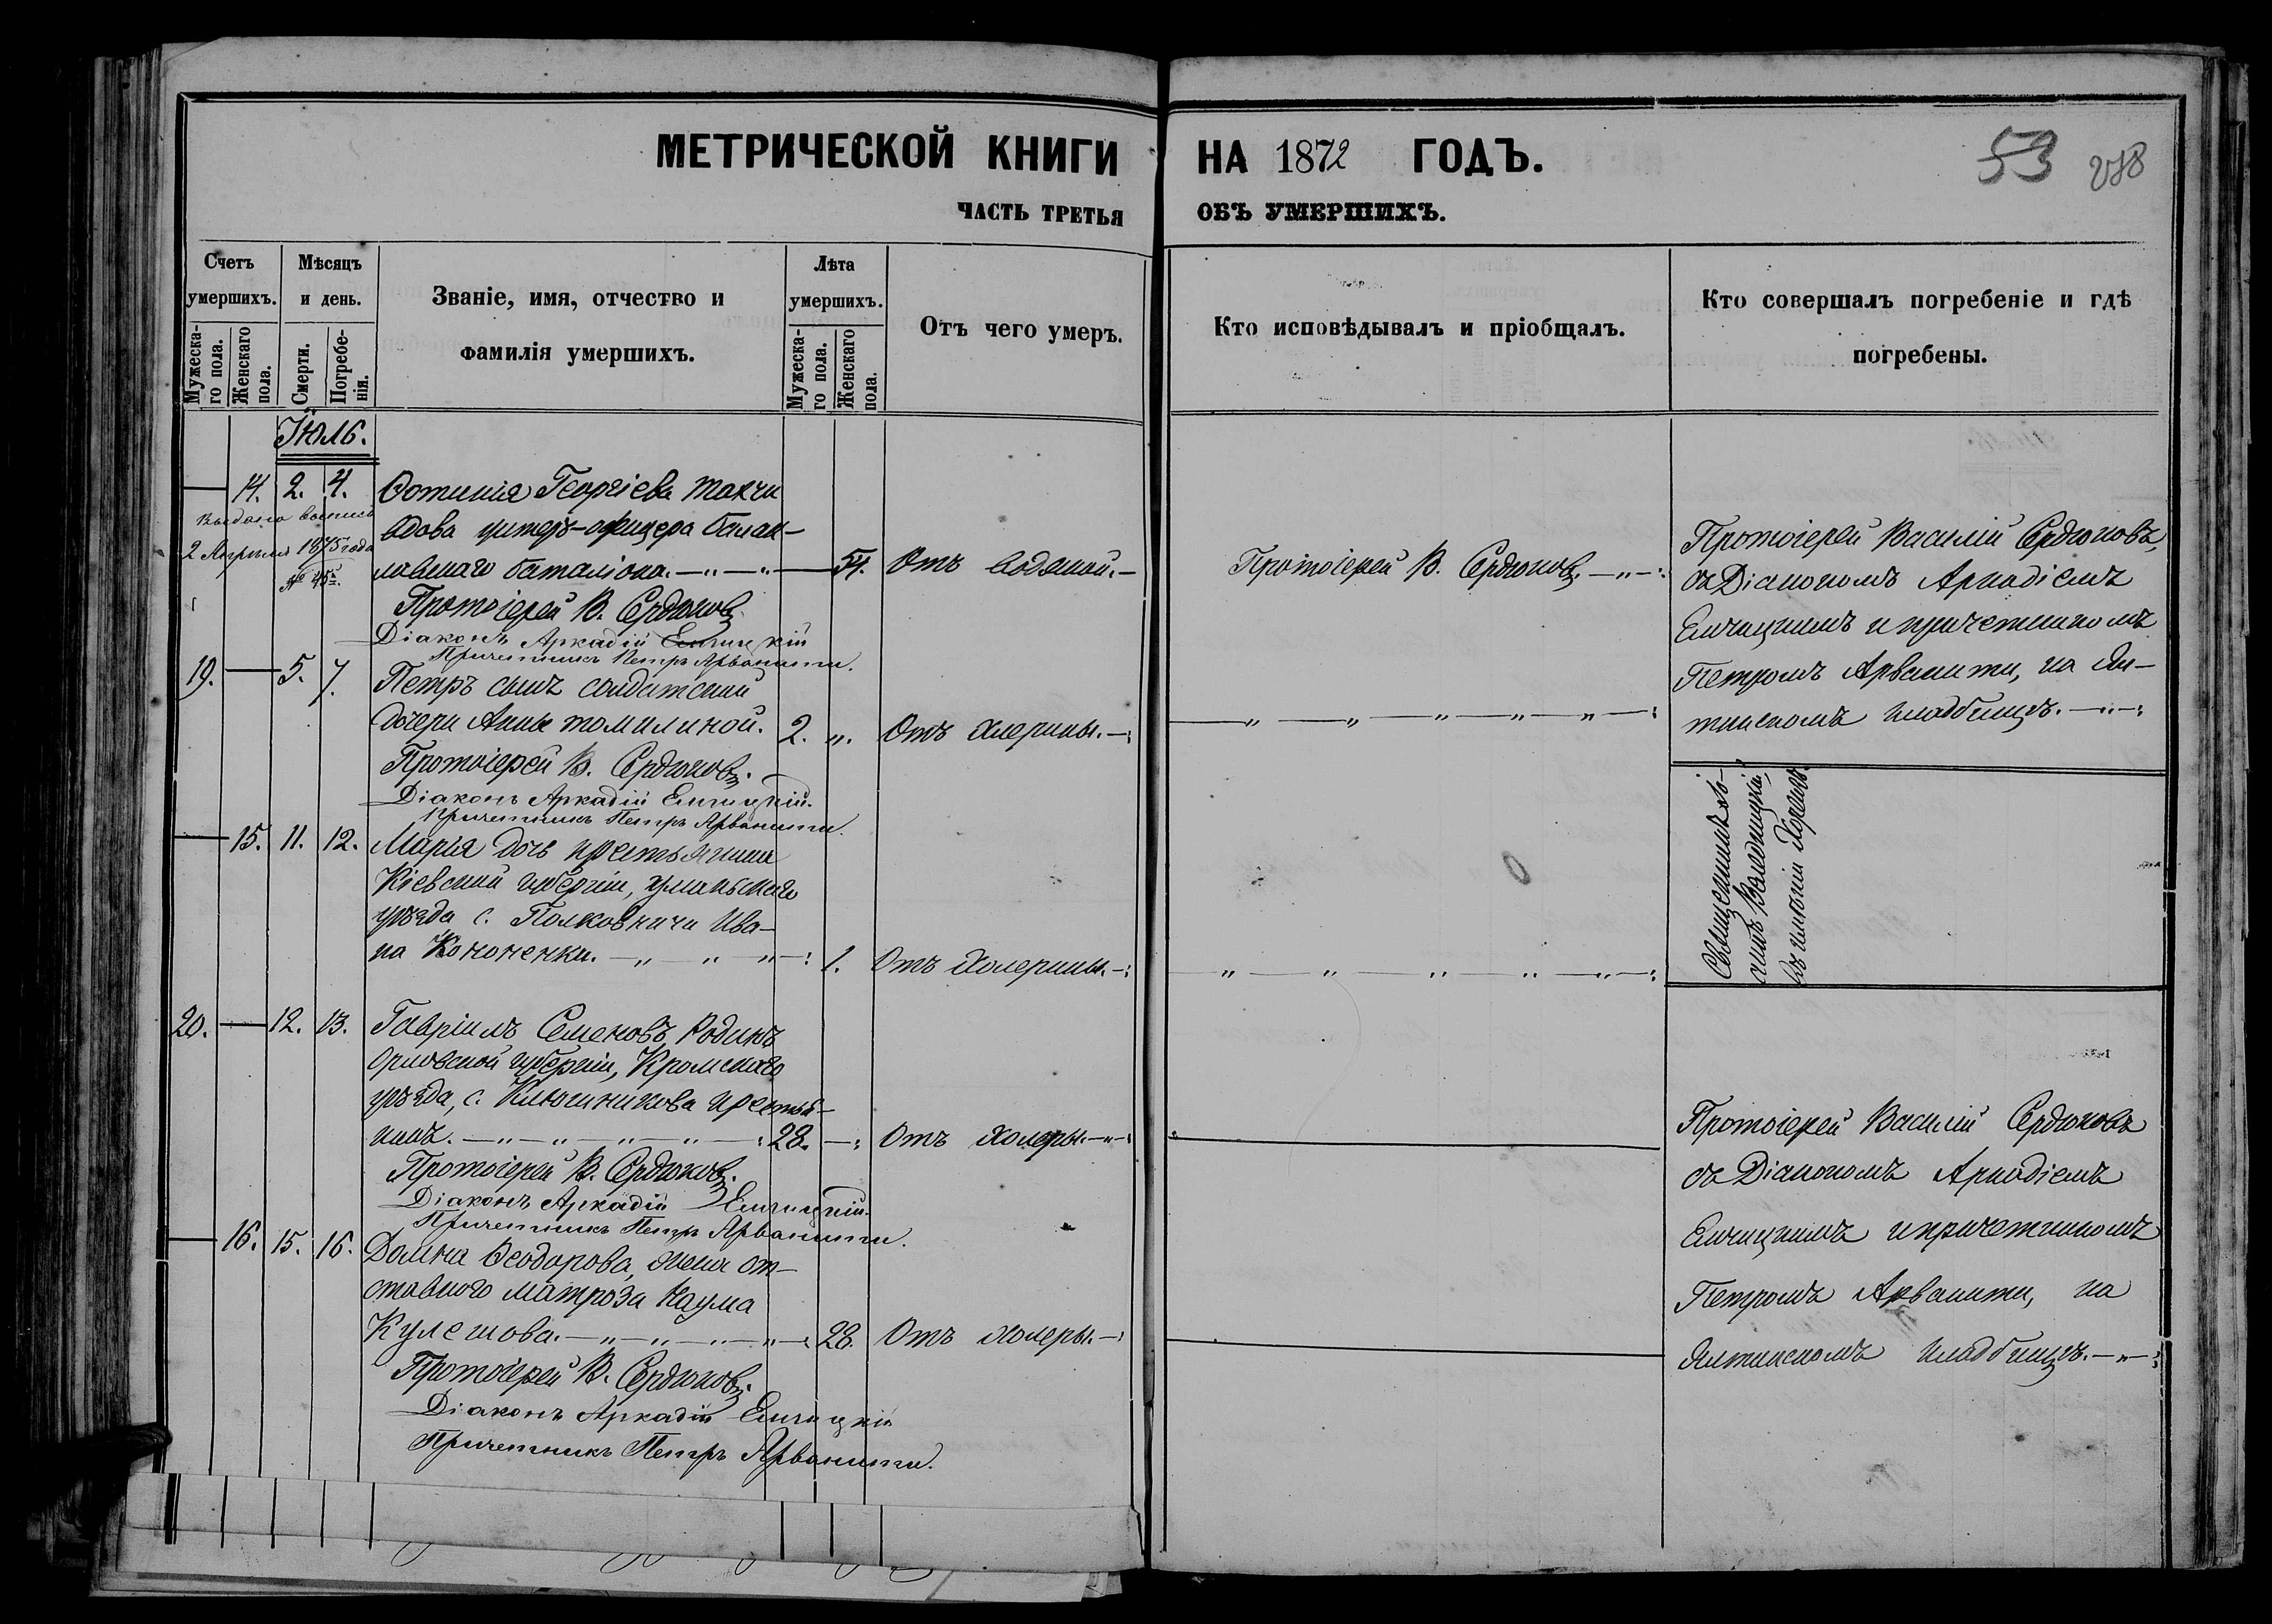 МЕТРИЧЕСКОЙ КНИГИ
НА 1872 ГОДЪ.
53 238
ЧАСТЬ ТРЕТЬЯ
ОБЪ УМЕРШИХЪ.
Счетъ умершихъ.
Мужеска-го пола.
Женскаго пола.
Мѣсяцъ и день.
Смерти.
Погребе-нія.
Званіе, имя, отчество и
фамилія умершихъ.
Лѣта умершихъ.
Мужеска-го пола.
Женскаго пола.
Отъ чего умеръ.
Кто исповѣдывалъ и пріобщалъ.
Кто совершалъ погребеніе и гдѣ
погребены.
Іюль.
14. 2. 4. Ѳотинія Георгіева
Выдана выпись
вдова унтеръ-офицера балак-
2 Апрѣля 1875 года
№ 45
лавскаго баталіона. 54. Отъ водяной.
Протоіерей В. Сердюковъ.
Діаконъ Аркадій
Причетникъ Петръ Арванити.
19. 5. 7. Петръ сынъ солдатской
дочери Анны Томилиной. 2. „. Отъ холерины.
Протоіерей В. Сердюковъ.
Діаконъ Аркадій
Причетникъ Петръ Арванити.
15. 11. 12. Марія дочь крестьянина
Кіевской губерніи, Уманьскаго
уѣзда с. Полковничи Ива-
на Кононенки. 1. Отъ холерины.
20. 12. 13. Гавріилъ Семеновъ Родинъ
Орловской губерніи, Кромскаго
уѣзда, с. Ключникова крестья-
нинъ. 28. Отъ холеры.
Протоіерей В. Сердюковъ.
Діаконъ Аркадій
Причетникъ Петръ Арванити.
16. 15. 16. Домна Ѳеодорова, жена от-
ставного матроза Наума
Кулешова. 28. Отъ холеры.
Протоіерей В. Сердюковъ.
Діаконъ Аркадій
Причетникъ Петръ Арванити.
Протоіерей В. Сердюковъ.
Протоіерей Василій Сердюковъ,
съ Діакономъ Аркадіемъ
и причетникомъ
Петромъ Арванити, на Ял-
тинскомъ кладбищѣ.
Священникъ
въ имѣніи Хорѣизъ.
Протоіерей Василій Сердюковъ
съ Діакономъ Аркадіемъ
и причетникомъ
Петромъ Арванити, на
Ялтинскомъ кладбищѣ.